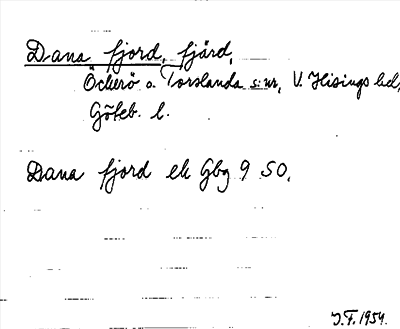 Dana fjord, fjärd,
Öckerö o. Torslanda s:nr, V. Hisings hd,
Göteb. l.
Dana fjord ek Gbg 9 SO.
J.F. 1954.